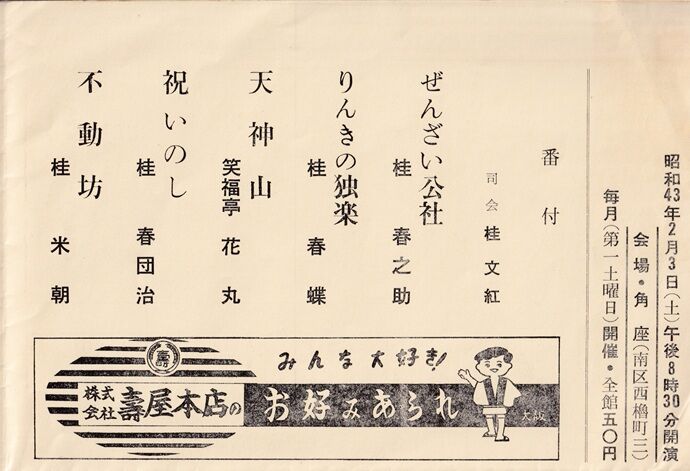 昭和43年2月3日(土)午後8時30分開演
会場・角座(南区西櫓町三)
毎月(第一土曜日)開催・全館五〇円
番付
司会 桂文紅
ぜんざい公社
桂春之助
りんきの独楽
桂春蝶
天神山
笑福亭花丸
祝いのし
桂春団治
不動坊
桂米朝
壽
みんな大好き!
株式会社壽屋本店の
お好みあられ
大阪